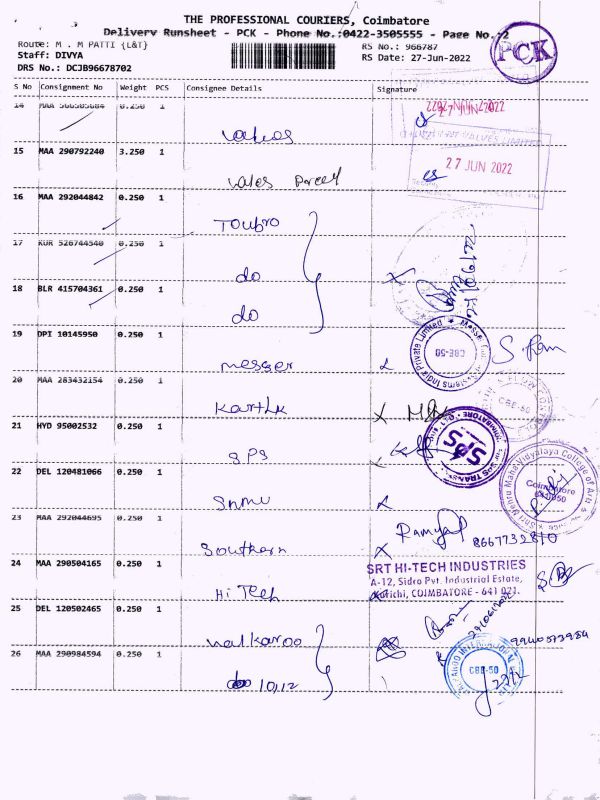 THE PROFESSIONAL COURIERS, Coimbatore
Delivery Runsheet - PCK - Phone No.:0422-3505555 - Page No.:2
Route: M . M PATTI {L&T}
Staff: DIVYA
DRS No.: DCJB96678702
RS No.: 966787
RS Date: 27-Jun-2022
PCK
S No Consignment No Weight PCS Consignee Details Signature
14 MAA 0.250 1
27 JUN 2022
15 MAA 290792240 3.250 1
VALVES LIMITED
27 JUN 2022
Valves Parcel
16 MAA 292044842 0.250 1
Toubro
17 KUR 526744540 0.250 1
do
18 BLR 415704361 0.250 1
do
19 DPI 10145950 0.250 1
Systems India Private Limited ★ Messer
CBE-50
messer
S. Ram
20 MAA 283432154 0.250 1
Karthk
CBE-50
21 HYD 95002532 0.250 1
S.P.S
SPS
SPS TRANS
COIMBATORE
22 DEL 120481066 0.250 1
Snmv
Shri Nehru Maha Vidyalaya College of Arts &
Coimbatore
641 050
23 MAA 292044695 0.250 1
Southern
Ramya
8667732810
24 MAA 290504165 0.250 1
Hi Tech
SRT HI-TECH INDUSTRIES
A-12, Sidro Pvt. Industrial Estate,
Kurichi, COIMBATORE - 641 021.
25 DEL 120502465 0.250 1
walkaroo
9940573984
26 MAA 290984594 0.250 1
do 10,12
CBE-50